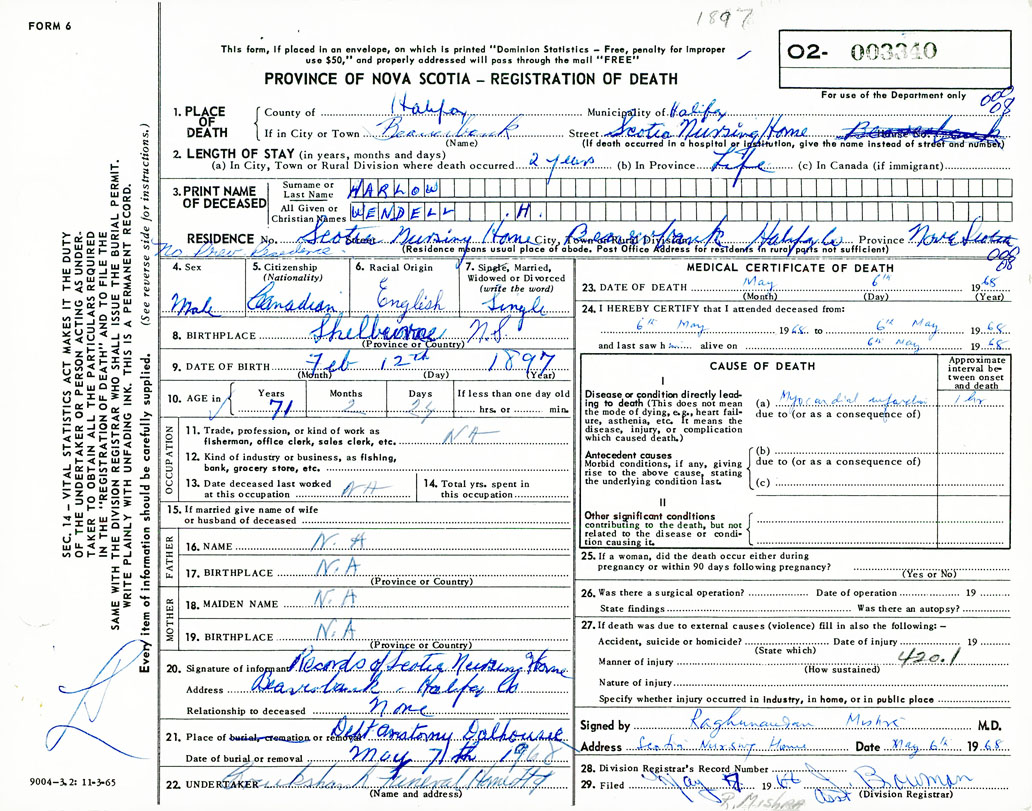 1897
FORM 6
This form, if placed in an envelope, on which is printed "Dominion Statistics – Free, penalty for improper
use $50," and properly addressed will pass through the mail "FREE"
O2- 003340
PROVINCE OF NOVA SCOTIA – REGISTRATION OF DEATH
For use of the Department only
SEC. 14 – VITAL STATISTICS ACT MAKES IT THE DUTY
OF THE UNDERTAKER OR PERSON ACTING AS UNDER-
TAKER TO OBTAIN ALL THE PARTICULARS REQUIRED
IN THE "REGISTRATION OF DEATH" AND TO FILE THE
SAME WITH THE DIVISION REGISTRAR WHO SHALL ISSUE THE BURIAL PERMIT.
WRITE PLAINLY WITH UNFADING INK. THIS IS A PERMANENT RECORD.
Every item of information should be carefully supplied. (See reverse side for instructions.)
1. PLACE OF DEATH
County of Halifax Municipality of Halifax
If in City or Town Beaverbank Street Scotia Nursing Home
(Name) (If death occurred in a hospital or institution, give the name instead of street and number)
2. LENGTH OF STAY (in years, months and days)
(a) In City, Town or Rural Division where death occurred 2 years (b) In Province Life (c) In Canada (if immigrant)
3. PRINT NAME OF DECEASED
Surname or Last Name HARLOW
All Given or Christian Names WENDELL .H.
RESIDENCE No. Scotia Street Nursing Home City, Town or Rural Division Beaverbank Halifax Co Province Nova Scotia
(Residence means usual place of abode. Post Office Address for residents in rural parts not sufficient)
4. Sex Male
5. Citizenship (Nationality) Canadian
6. Racial Origin English
7. Single, Married, Widowed or Divorced (write the word) Single
8. BIRTHPLACE Shelburne N.S.
(Province or Country)
9. DATE OF BIRTH Feb 12th 1897
(Month) (Day) (Year)
10. AGE in Years 71 Months 2 Days 24 If less than one day old hrs. or min.
OCCUPATION
11. Trade, profession, or kind of work as fisherman, office clerk, sales clerk, etc. NA
12. Kind of industry or business, as fishing, bank, grocery store, etc.
13. Date deceased last worked at this occupation NA
14. Total yrs. spent in this occupation
15. If married give name of wife or husband of deceased
FATHER
16. NAME N.A
17. BIRTHPLACE N.A
(Province or Country)
MOTHER
18. MAIDEN NAME N.A
19. BIRTHPLACE N.A
(Province or Country)
20. Signature of informant Records of Scotia Nursing Home
Address Beaverbank - Halifax Co
Relationship to deceased None
21. Place of burial, cremation or removal Dept Anatomy Dalhousie
Date of burial or removal May 7th 1968
22. UNDERTAKER Funeral Home
(Name and address)
MEDICAL CERTIFICATE OF DEATH
23. DATE OF DEATH May 6th 1968
(Month) (Day) (Year)
24. I HEREBY CERTIFY that I attended deceased from:
6th May 1968 to 6th May 1968
and last saw him alive on 6th May 1968
CAUSE OF DEATH
Approximate interval between onset and death
I
Disease or condition directly leading to death (This does not mean the mode of dying, e.g., heart failure, asthenia, etc. It means the disease, injury, or complication which caused death.)
(a) Myocardial infarction 1 hr
due to (or as a consequence of)
Antecedent causes
Morbid conditions, if any, giving rise to the above cause, stating the underlying condition last.
(b)
due to (or as a consequence of)
(c)
II
Other significant conditions
contributing to the death, but not related to the disease or condition causing it.
25. If a woman, did the death occur either during pregnancy or within 90 days following pregnancy?
(Yes or No)
26. Was there a surgical operation? Date of operation 19
State findings Was there an autopsy?
27. If death was due to external causes (violence) fill in also the following: –
Accident, suicide or homicide? Date of injury 19
(State which)
Manner of injury 420.1
(How sustained)
Nature of injury
Specify whether injury occurred in industry, in home, or in public place
Signed by Raghunandan Mishra M.D.
Address Scotia Nursing Home Date May 6th 1968
28. Division Registrar's Record Number
29. Filed May 7 1968 Bowman
(Division Registrar)
R. MISHRA
9004–3.2: 11-3-65